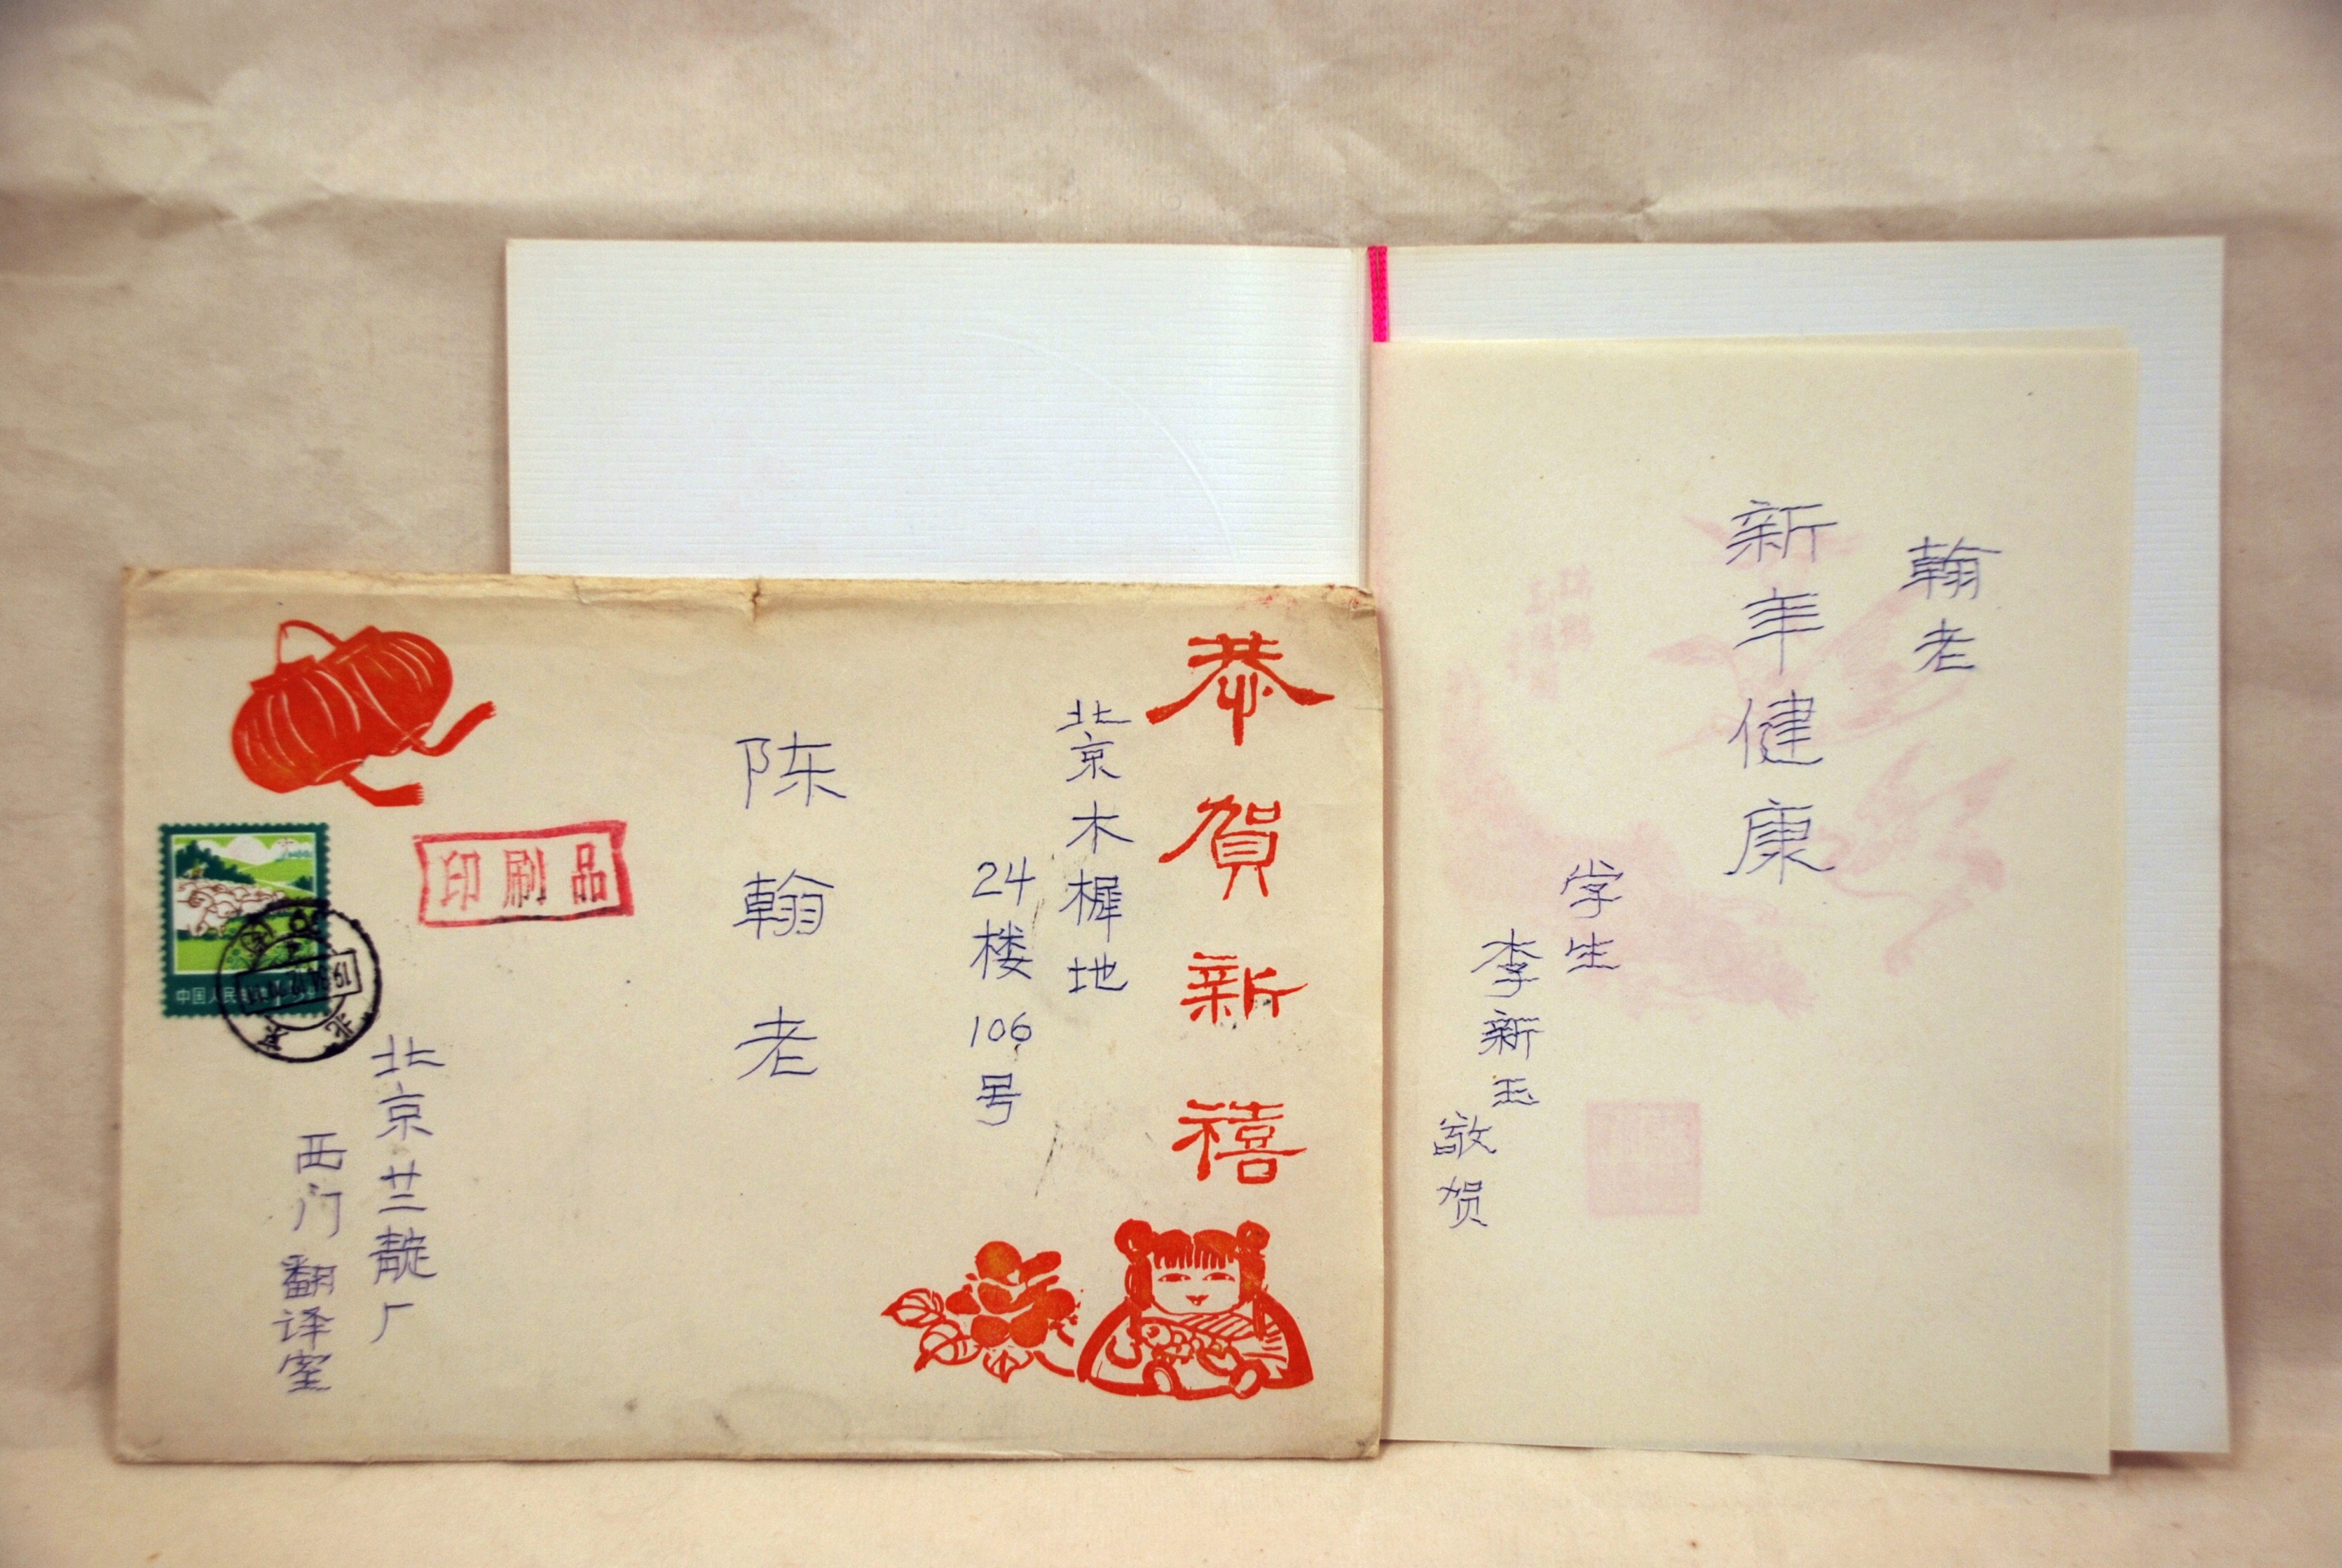 恭贺新禧
北京木樨地
24楼106号
陈翰老
印刷品
北京兰靛厂
西门翻译室
翰老
新年健康
学生
李新玉
敬贺